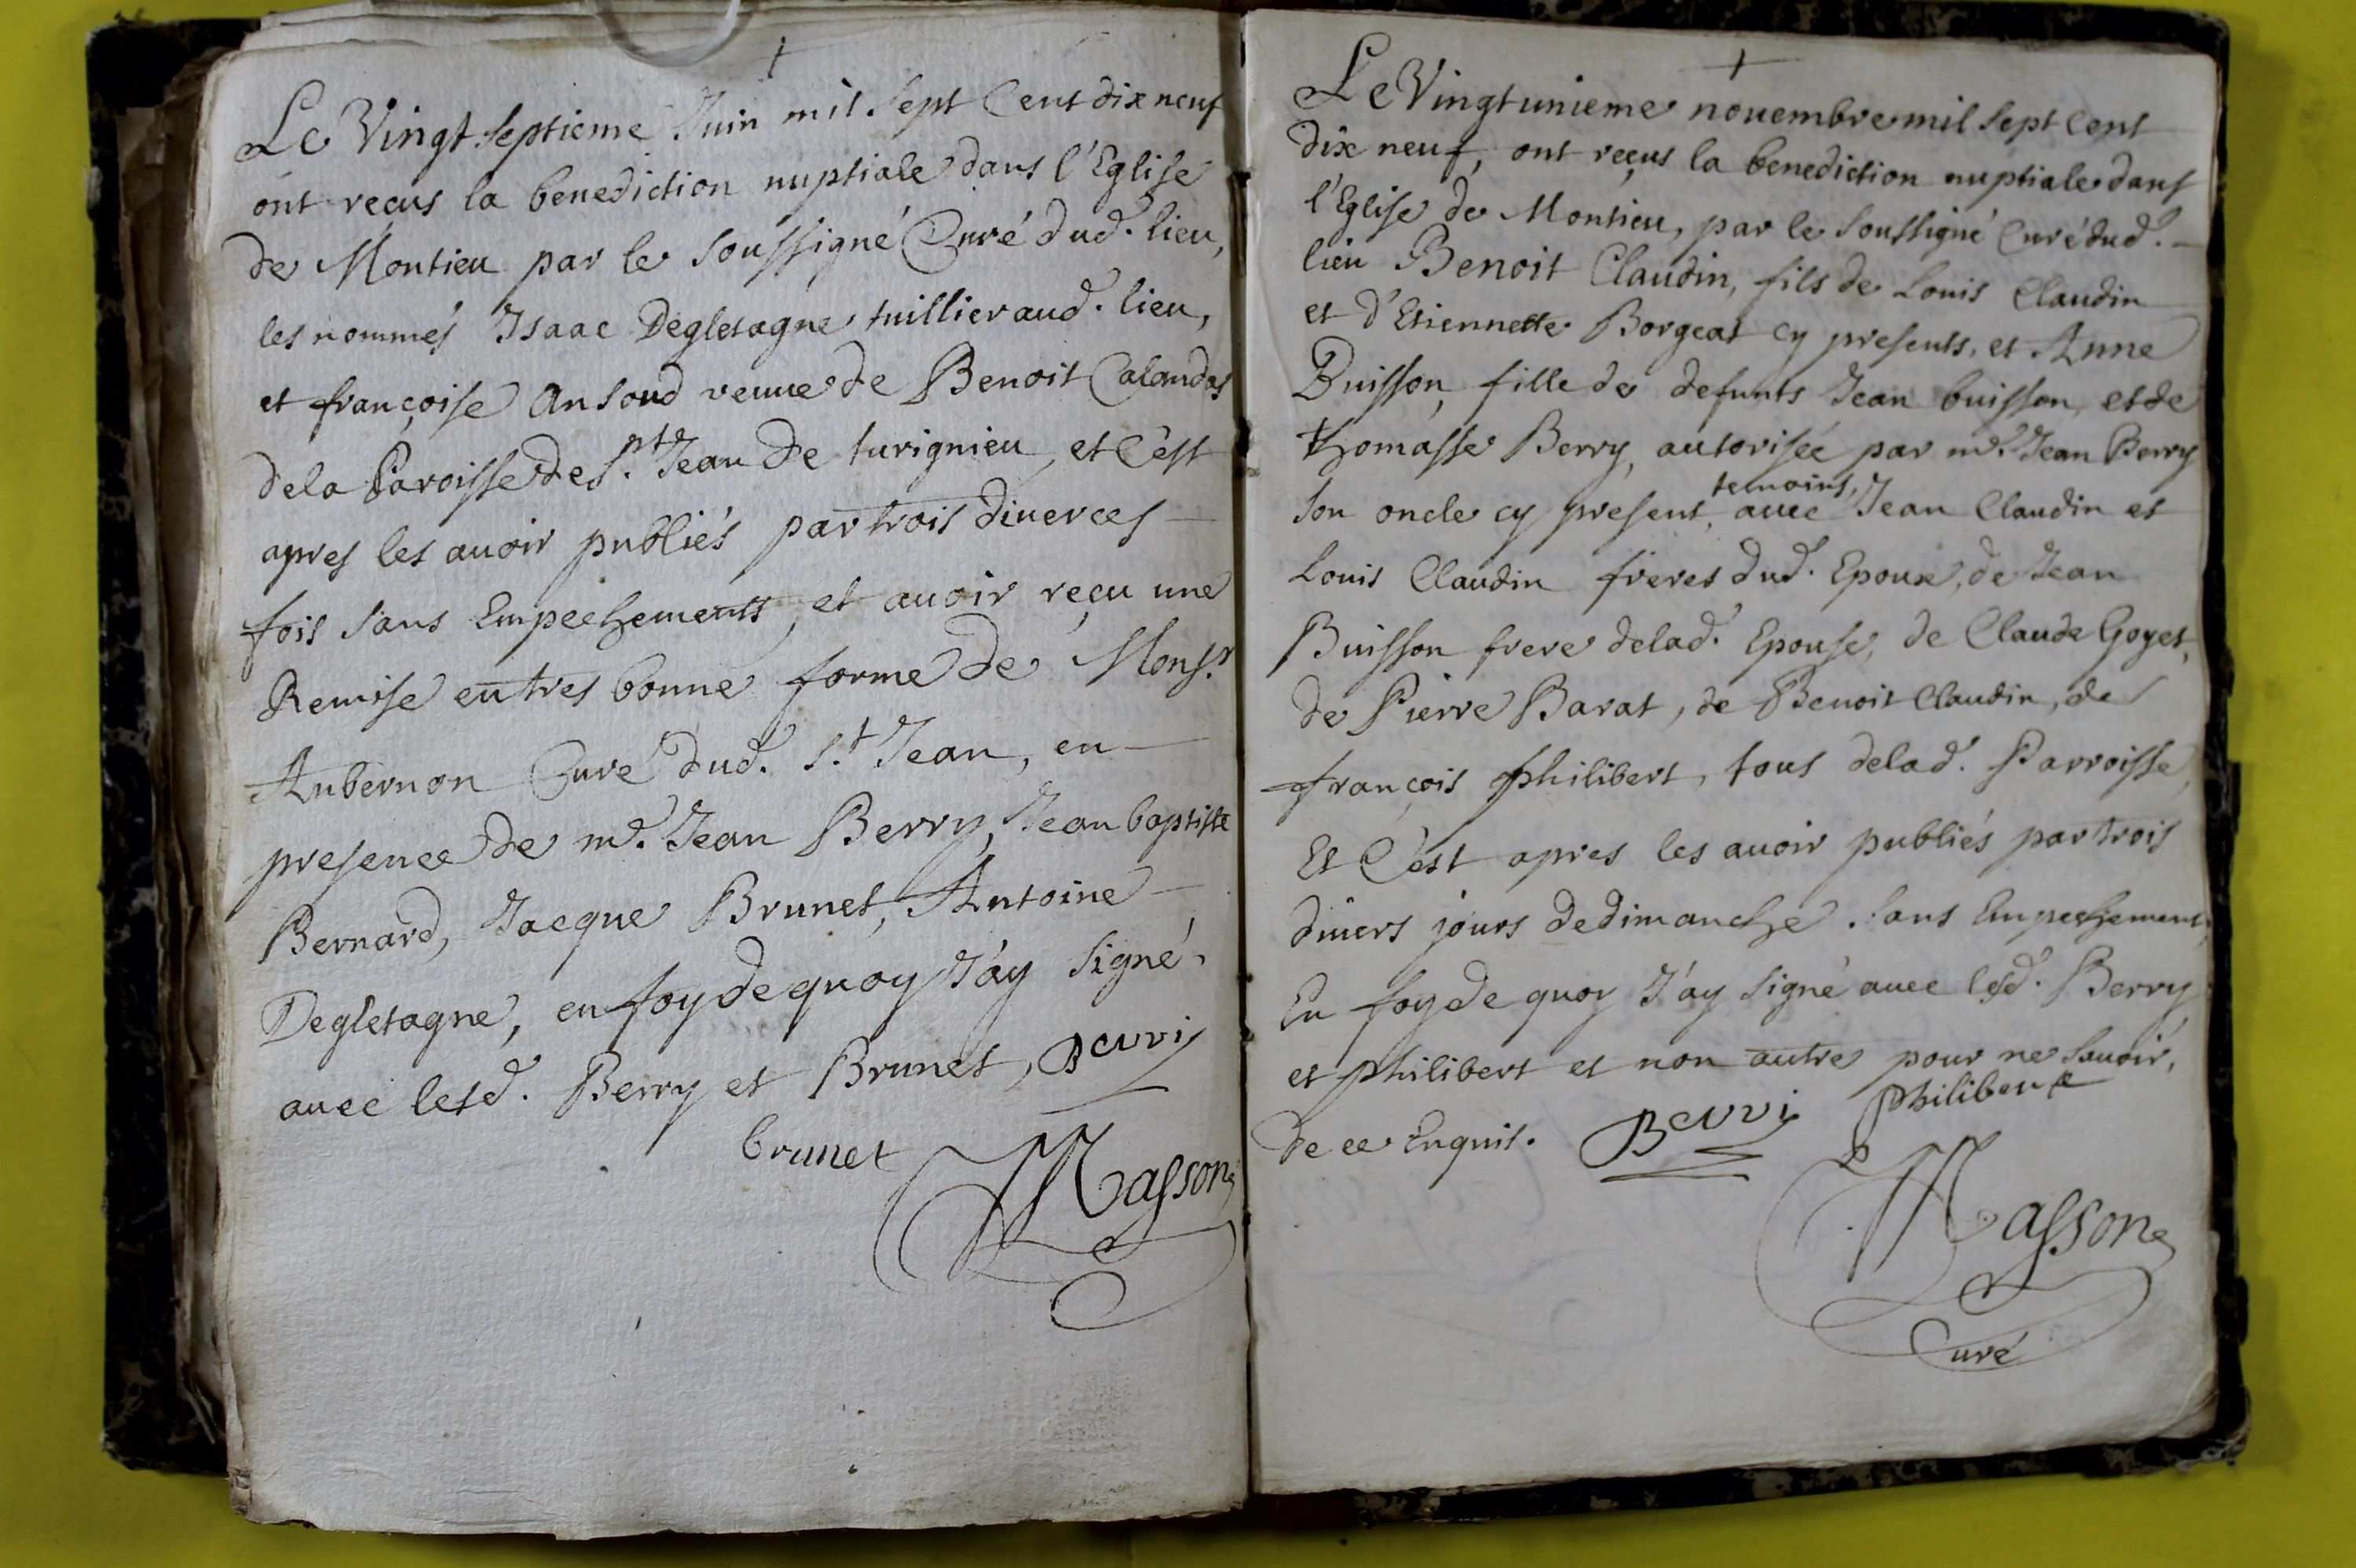 Le Vingt septieme Juin mil sept Cent dix neuf
ont reçus la benediction nuptiale dans l'Eglise
de Montieu par le soussigné Curé dud. lieu,
les nommés Isaac Degletagne tuillier aud. lieu,
et françoise Ansoud veuve de Benoit Calandas
de la Paroisse de St. Jean de turignieu, et C'est
apres les avoir publiés par trois diverces
fois sans Empechements, et avoir reçu une
Remise en tres bonne forme de Monsr.
Aubernon Curé dud. St. Jean, en
presence de me. Jean Berry, Jean baptiste
Bernard, Jacque Brunet, Antoine
Degletagne, en foy de quoy J'ay signé
avec lesd. Berry et Brunet, Berri
brunet
Masson
Le Vingt unieme novembre mil sept Cent
dix neuf, ont reçus la benediction nuptiale dans
l'Eglise de Montieu, par le soussigné Curé dud.
lieu Benoit Claudin, fils de Louis Claudin
et d'Etiennette Borgeat cy presents, et Anne
Buisson, fille de defunts Jean buisson, et de
thomasse Berry, autorisée par me. Jean Berry
son oncle cy present, temoins, avec Jean Claudin et
Louis Claudin freres dud. Epoux, de Jean
Buisson frere de lad. Epouse, de Claude Goyet,
de Pierre Barat, de Benoit Claudin, de
françois philibert, tous de lad. Parroisse,
Et C'est apres les avoir publiés par trois
divers jours de dimanche sans Empechement,
En foy de quoy J'ay signé avec lesd. Berry
et philibert et non autre pour ne savoir,
de ce Enquis. Berri philibert
Masson
Curé